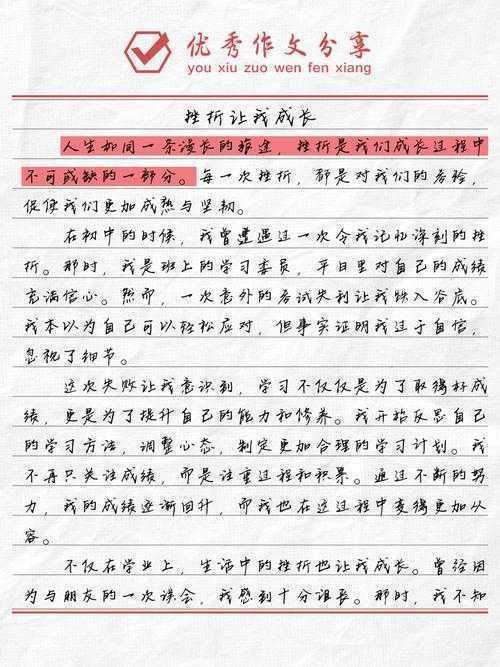 优秀作文分享
you xiu zuo wen fen xiang
挫折让我成长
人生如同一条漫长的旅途，挫折是我们成长过程中
不可或缺的一部分。每一次挫折，都是对我们的考验，
促使我们更加成熟与坚韧。
在初中的时候，我曾遭遇过一次令我记忆深刻的挫
折。那时，我是班上的学习委员，平日里对自己的成绩
充满信心。然而，一次意外的考试失利让我跌入谷底。
我本以为自己可以轻松应对，但事实证明我过于自信，
忽视了细节。
这次失败让我意识到，学习不仅仅是为了取得好成
绩，更是为了提升自己的能力和修养。我开始反思自己
的学习方法，调整心态，制定更加合理的学习计划。我
不再只关注成绩，而是注重过程和积累。通过不断的努
力，我的成绩逐渐回升，而我也在这过程中变得更加从
容。
不仅在学业上，生活中的挫折也让我成长。曾经因
为与朋友的一次误会，我感到十分沮丧。那时，我不知